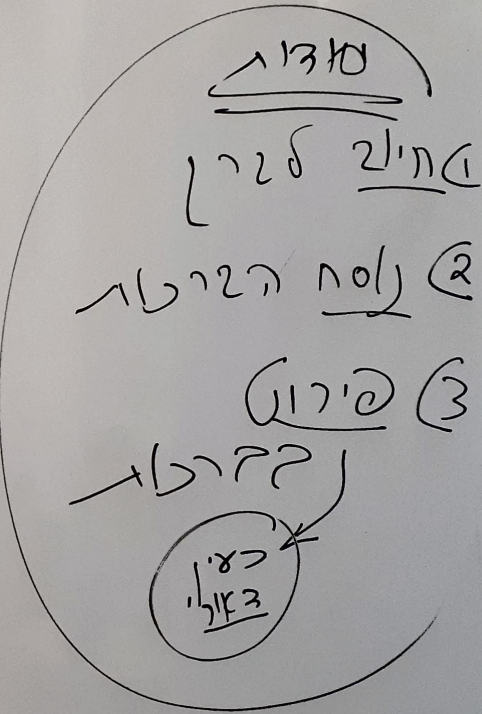 יסודות
1) חיוב לברך
2) נוסח הברכות
3) פירוט
בברכות
כעין
דאורי'